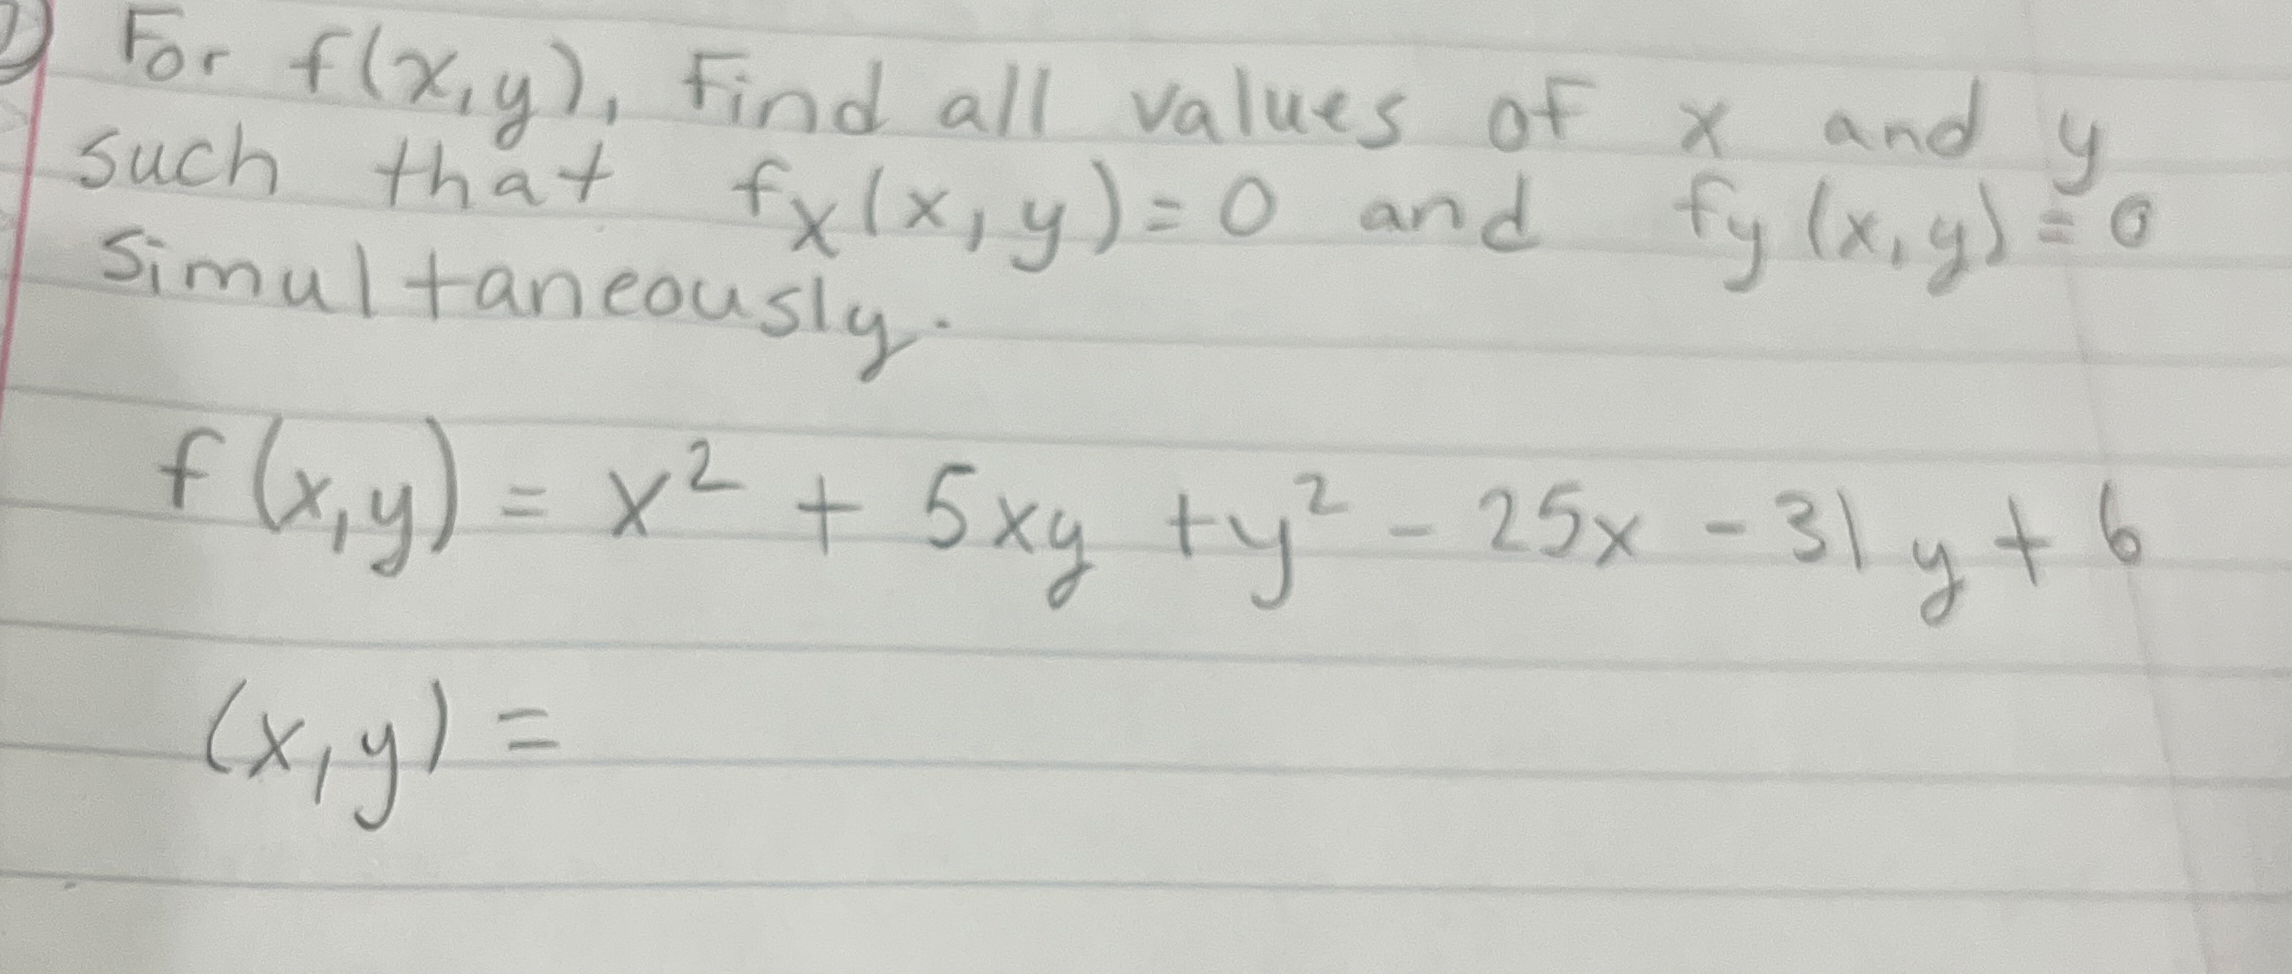 For f(x,y), Find all values of x and y
such that fx(x,y)=0 and fy(x,y)=0
simultaneously.
f(x,y) = x² + 5xy + y² - 25x - 31y + 6
(x,y) =